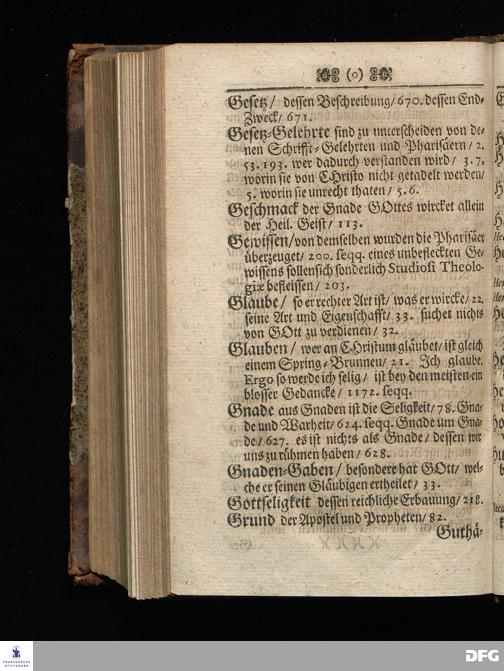 (o)
Gesetz/ dessen Beschreibung/ 670. dessen End-
Zweck/ 671.
Gesetz-Gelehrte sind zu unterscheiden von de-
nen Schrifft-Gelehrten und Pharisäern/ 2.
53. 193. wer dadurch verstanden wird/ 3. 7.
worin sie von CHristo nicht getadelt werden/
5. worin sie unrecht thaten/ 5. 6.
Geschmack der Gnade GOttes wircket allein
der Heil. Geist/ 113.
Gewissen/ von demselben wurden die Pharisäer
überzeuget/ 200. seqq. eines unbefleckten Ge-
wissens sollen sich sonderlich Studiosi Theolo-
giæ befleissen/ 203.
Glaube/ so er rechter Art ist/ was er wircke/ 22.
seine Art und Eigenschafft/ 33. suchet nichts
von GOtt zu verdienen/ 32.
Glauben/ wer an CHristum gläubet/ ist gleich
einem Spring-Brunnen/ 21. Ich glaube.
Ergo so werde ich selig/ ist bey den meisten ein
blosser Gedancke/ 1172. seqq.
Gnade aus Gnaden ist die Seligkeit/ 78. Gna-
de und Warheit/ 624. seqq. Gnade um Gna-
de/ 627. es ist nichts als Gnade/ dessen wir
uns zu rühmen haben/ 628.
Gnaden-Gaben/ besondere hat GOtt/ wel-
che er seinen Gläubigen ertheilet/ 33.
Gottseligkeit dessen reichliche Erbauung/ 218.
Grund der Apostel und Propheten/ 82.
Guthä-
FRANCKESCHE
STIFTUNGEN
DFG